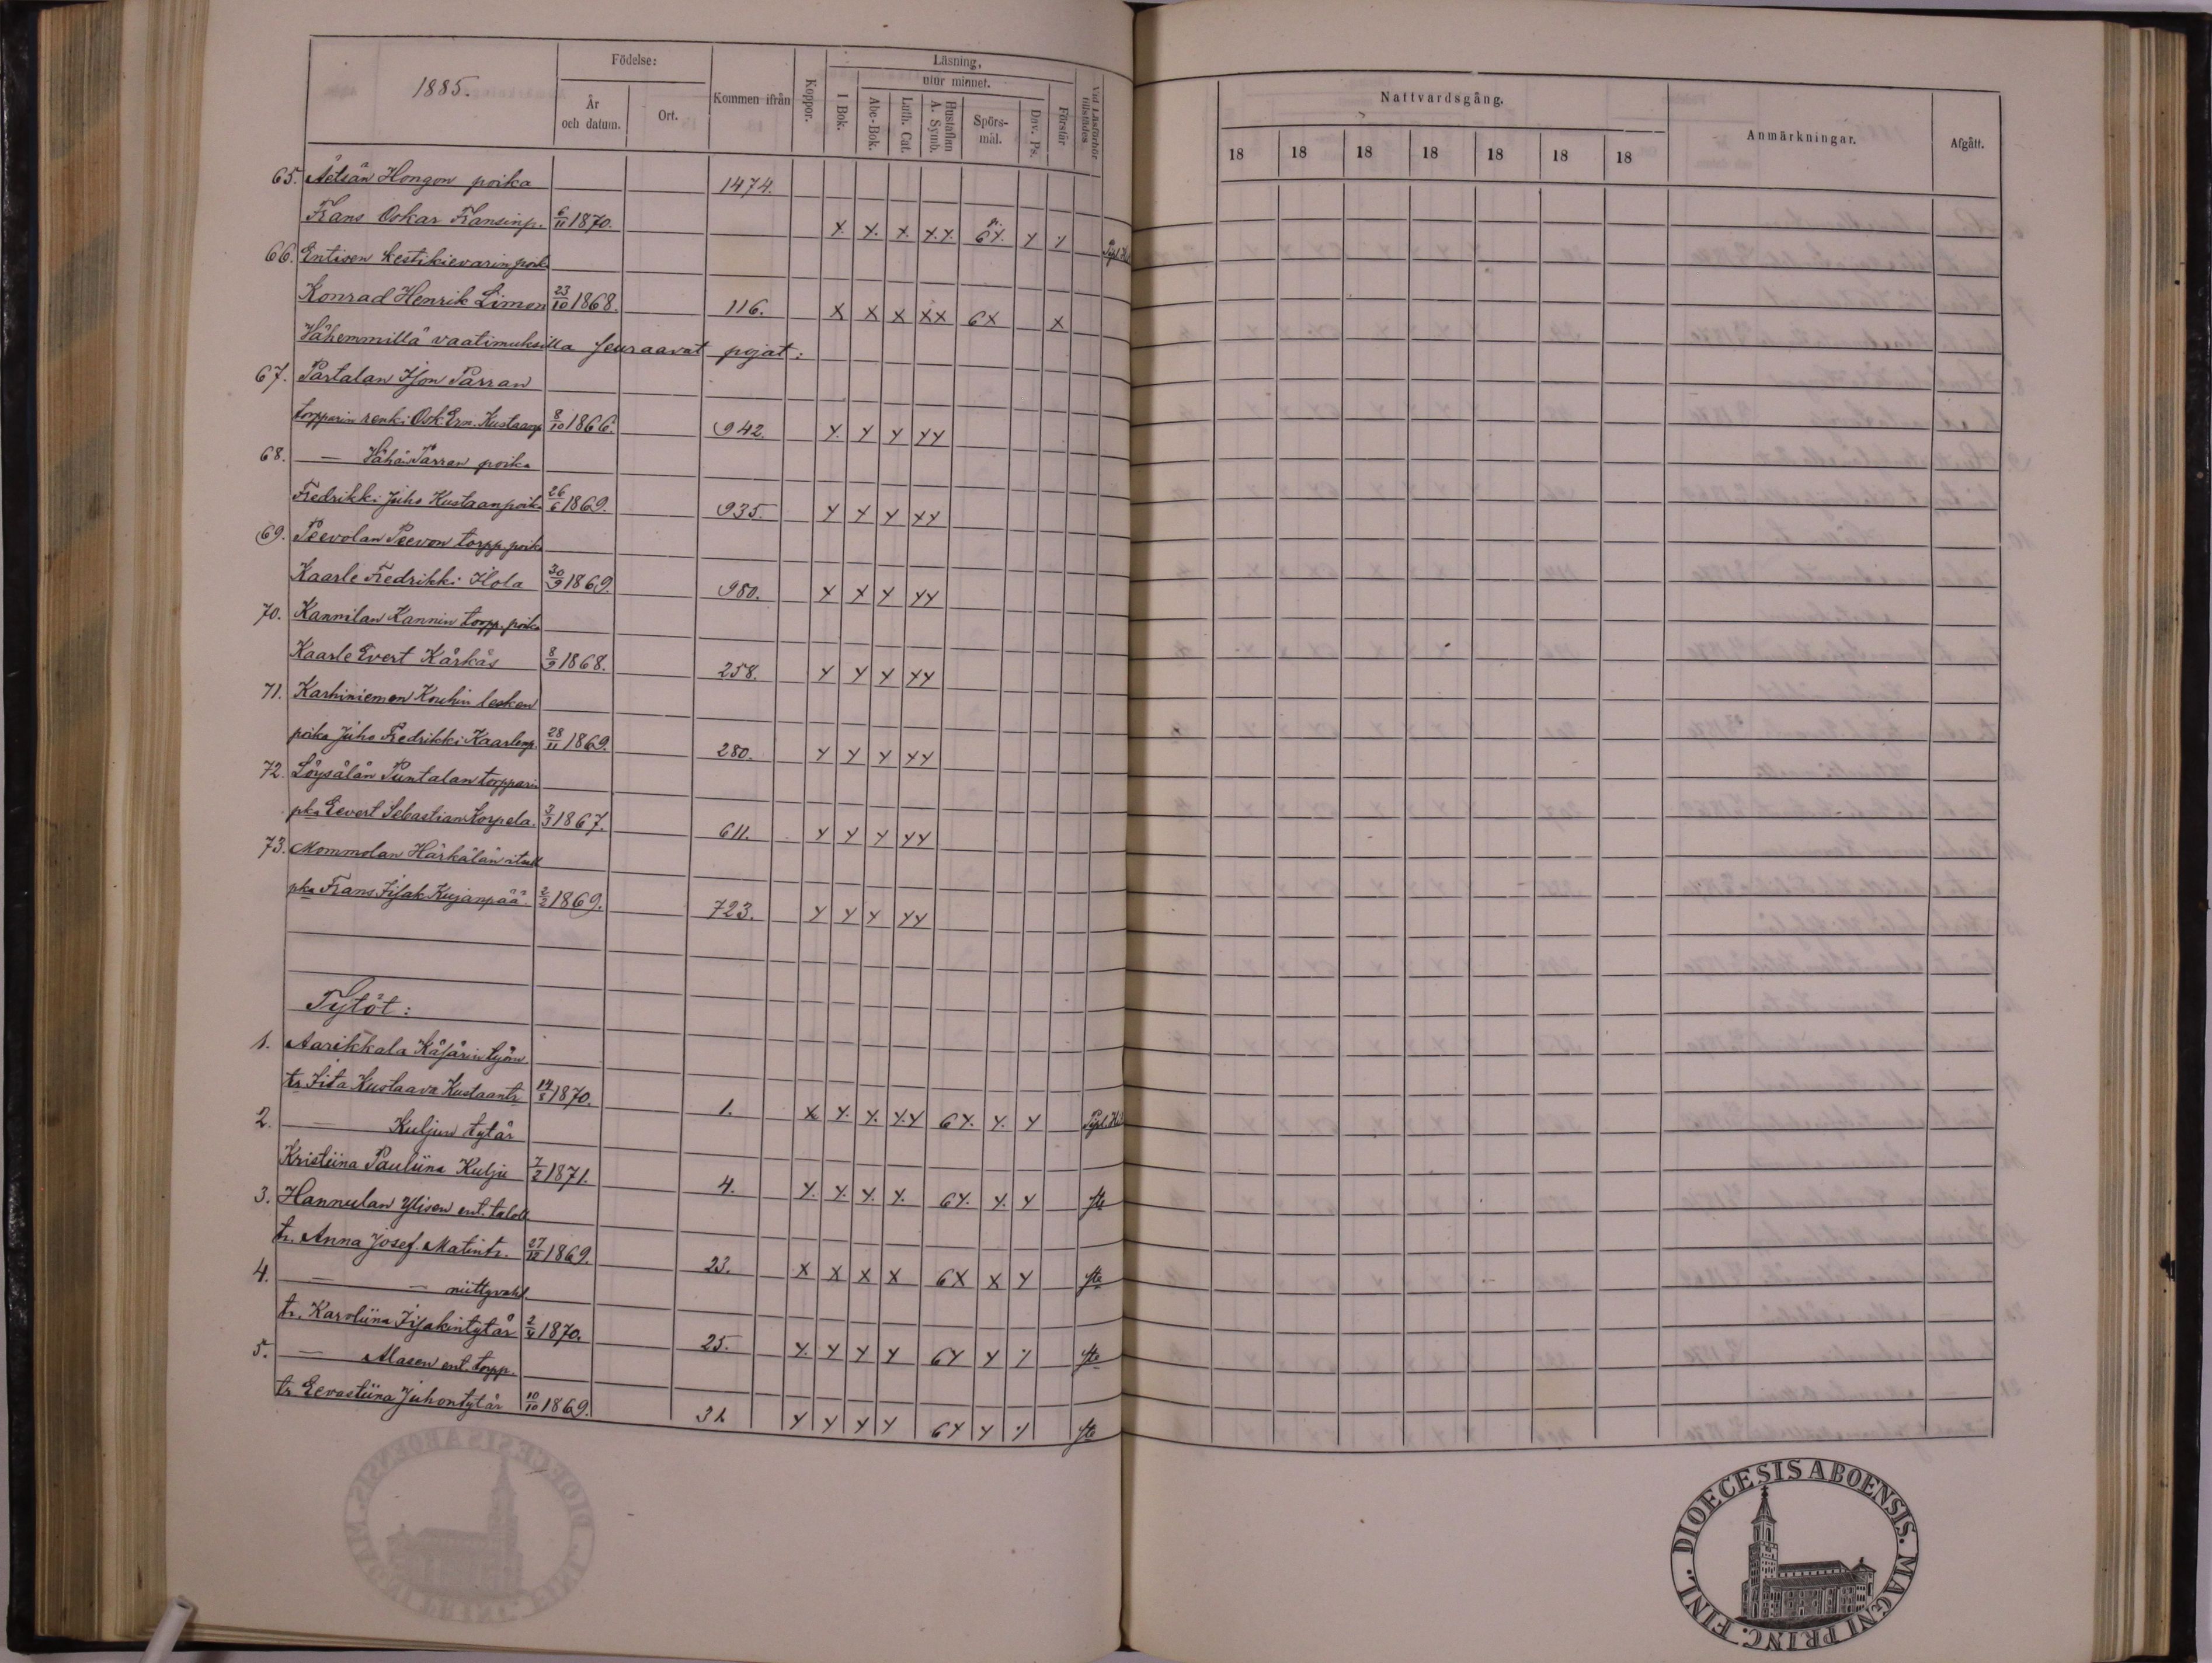 1885.
Födelse:
År och datum.
Ort.
Kommen ifrån
Koppor.
Läsning,
utur minnet.
I Bok.
Abc-Bok.
Luth. Cat.
Hustaflan A. Symb.
Spörs-mål.
Dav. Ps.
Förstår
Vid Läsförhör tillstädes
Nattvardsgång.
18 18 18 18 18 18 18
Anmärkningar.
Afgått.
65. Äetsän Hongon poika 1474.
Frans Oskar Fransinp. 6/11 1870. x. x. x. x.x. 6x. x x
66. Entisen kestikievarin poik.
Konrad Henrik Limon 23/10 1868. 116. x x x xx 6x x
Vähemmillä vaatimuksilla seuraavat pojat:
67. Partalan Ison Parran
torpparin renki Osk. Ern. Kustaanp 8/10 1866. 942. x. x x xx
68. — Vähä Parran poika
Fredrikki Juho Kustaanpoik. 26/6 1869. 935. x x x xx
69. Peevolan Peevon torpp. poika
Kaarle Fredrikki Ilola 30/9 1869. 980. x x x xx
70. Kannilan Kannin torpp. poika
Kaarle Evert Kärkäs 8/9 1868. 258. x x x xx
71. Karhiniemen Kouhin lesken
poika Juho Fredrikki Kaarlenp. 28/11 1869. 280. x x x xx
72. Löysälän Puntalan torpparin
pka Eevert Sebastian Korpela. 3/3 1867. 611. x x x xx
73. Mommolan Härkälän itsell
pka Frans Iisak Kujanpää. 2/2 1869. 723. x x x xx
Tytöt:
1. Aarikkala Käsärin työm
tr. Iita Kustaava Kustaantr 14/8 1870. 1. x x. x. x.x 6x. x. x
2. — Kuljun tytär
Kristiina Pauliina Kulju 7/2 1871. 4. x. x. x. x. 6x. x. x ste
3. Hannulan Ylisen ent. taloll
tr. Anna Josef. Matintr. 27/12 1869. 23. x x x x 6x x x ste
4. — — niittyvahd.
tr. Karoliina Iisakintytär 2/4 1870. 25. x. x x x 6x x x ste
5. — Alasen ent. torpp.
tr Eevastiina Juhontytär 10/10 1869. 31. x x x x 6x x x ste
DIOECESIS ABOENSIS. MAGNI PRINC. FINL.